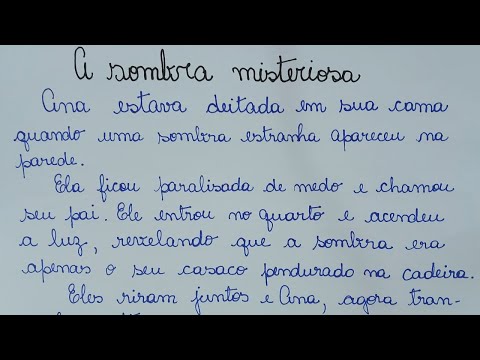 A sombra misteriosa
Ana estava deitada em sua cama
quando uma sombra estranha apareceu na
parede.
Ela ficou paralisada de medo e chamou
seu pai. Ele entrou no quarto e acendeu
a luz, revelando que a sombra era
apenas o seu casaco pendurado na cadeira.
Eles riram juntos e Ana, agora tran-